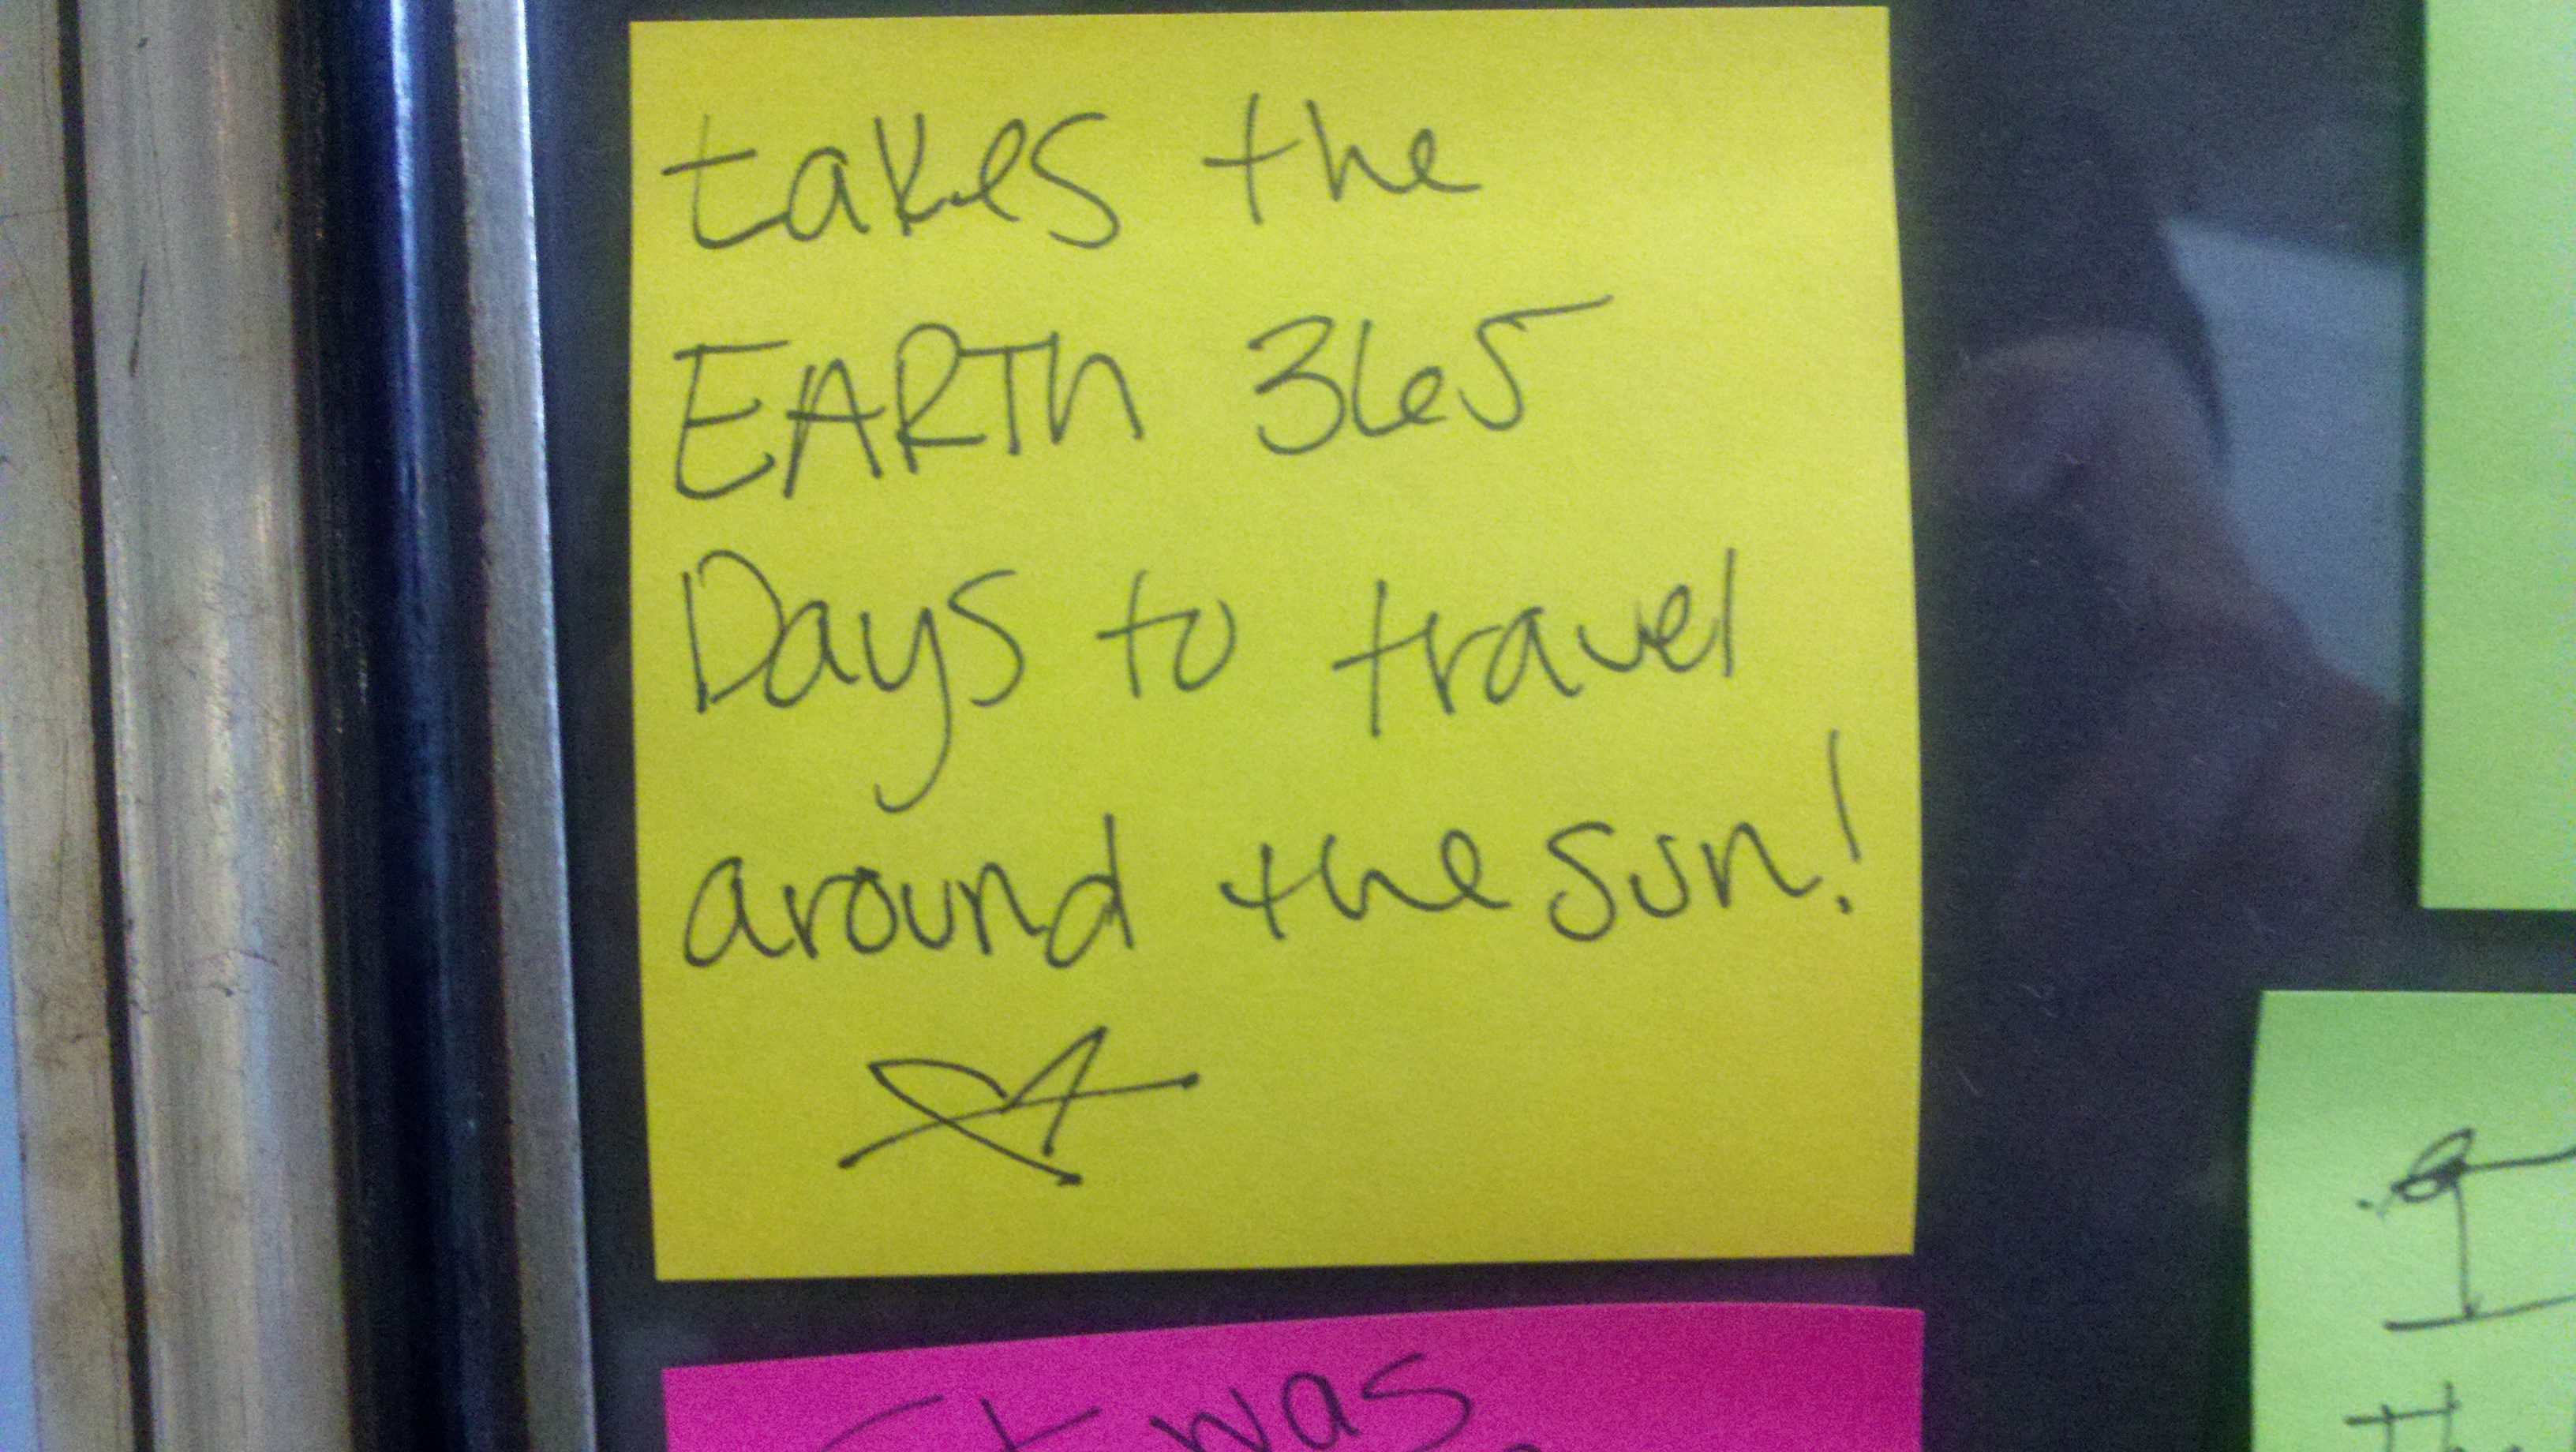 takes the
EARTh 365
Days to travel
around the sun!
It was